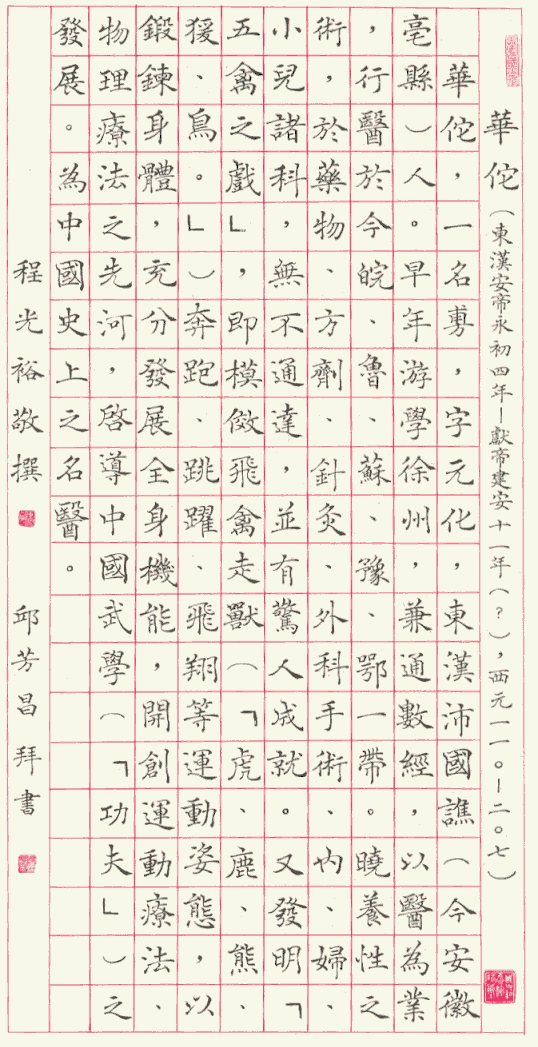 華佗(東漢安帝永初四年－獻帝建安十一年(?),西元一一〇－二〇七)
華佗,一名旉,字元化,東漢沛國譙(今安徽
亳縣)人。早年游學徐州,兼通數經,以醫為業
,行醫於今皖、魯、蘇、豫、鄂一帶。曉養性之
術,於藥物、方劑、針灸、外科手術、內、婦、
小兒諸科,無不通達,並有驚人成就。又發明「
五禽之戲」,即模倣飛禽走獸(「虎、鹿、熊、
猨、鳥。」)奔跑、跳躍、飛翔等運動姿態,以
鍛鍊身體,充分發展全身機能,開創運動療法、
物理療法之先河,啓導中國武學(「功夫」)之
發展。為中國史上之名醫。
程光裕敬撰 邱芳昌拜書